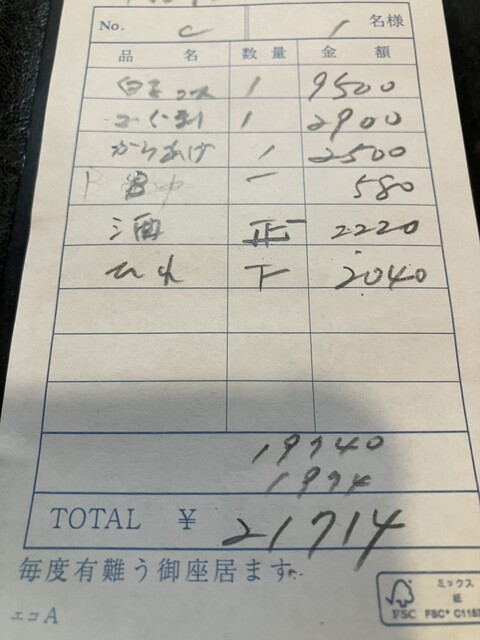 No. C 1 名様
品名 数量 金額
白子コース 1 9500
こにごり 1 2900
からあげ 1 2500
B中 一 580
酒 正一 2220
ひれ 下 2040
19740
1974
TOTAL ¥ 21714
毎度有難う御座居ます
エコA
ミックス
紙
FSC
FSC® C1153